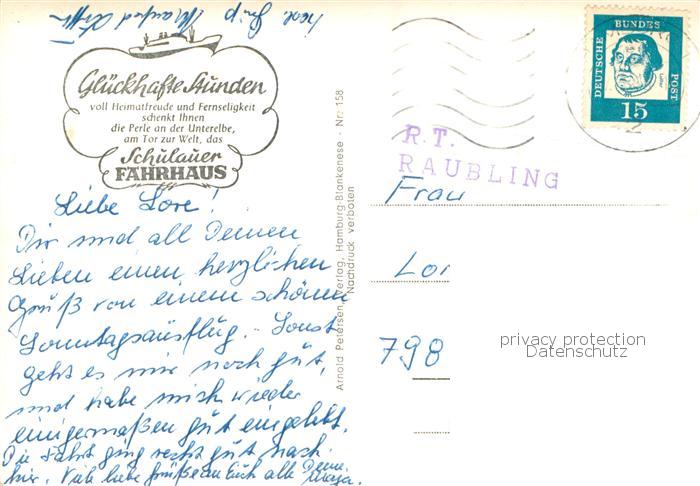 Glückhafte Stunden
voll Heimatfreude und Fernseligkeit
schenkt Ihnen
die Perle an der Unterelbe,
am Tor zur Welt, das
Schulauer
FÄHRHAUS
Liebe Lore!
Dir und all Deinen
Lieben einen herzlichen
Gruß von einem schönen
Sonntagsausflug. - Sonst
geht es mir noch gut,
und habe mich wieder
einigermaßen gut eingelebt.
Die Fahrt ging recht gut nach
hier. Viele liebe Grüße an Euch alle
herzl.
Manfred
Arnold Petersen, Verlag, Hamburg-Blankenese · Nr. 158
Nachdruck verboten
DEUTSCHE
BUNDES
POST
Luther
15
R.T.
RAUBLING
Frau
Lor
798
privacy protection
Datenschutz